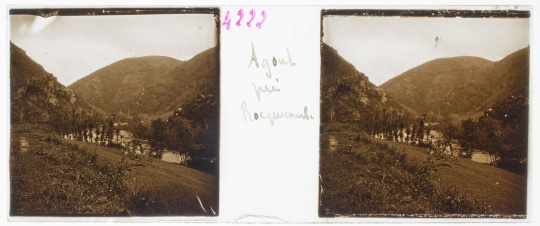 4222
Agout
près
Roquecourbe